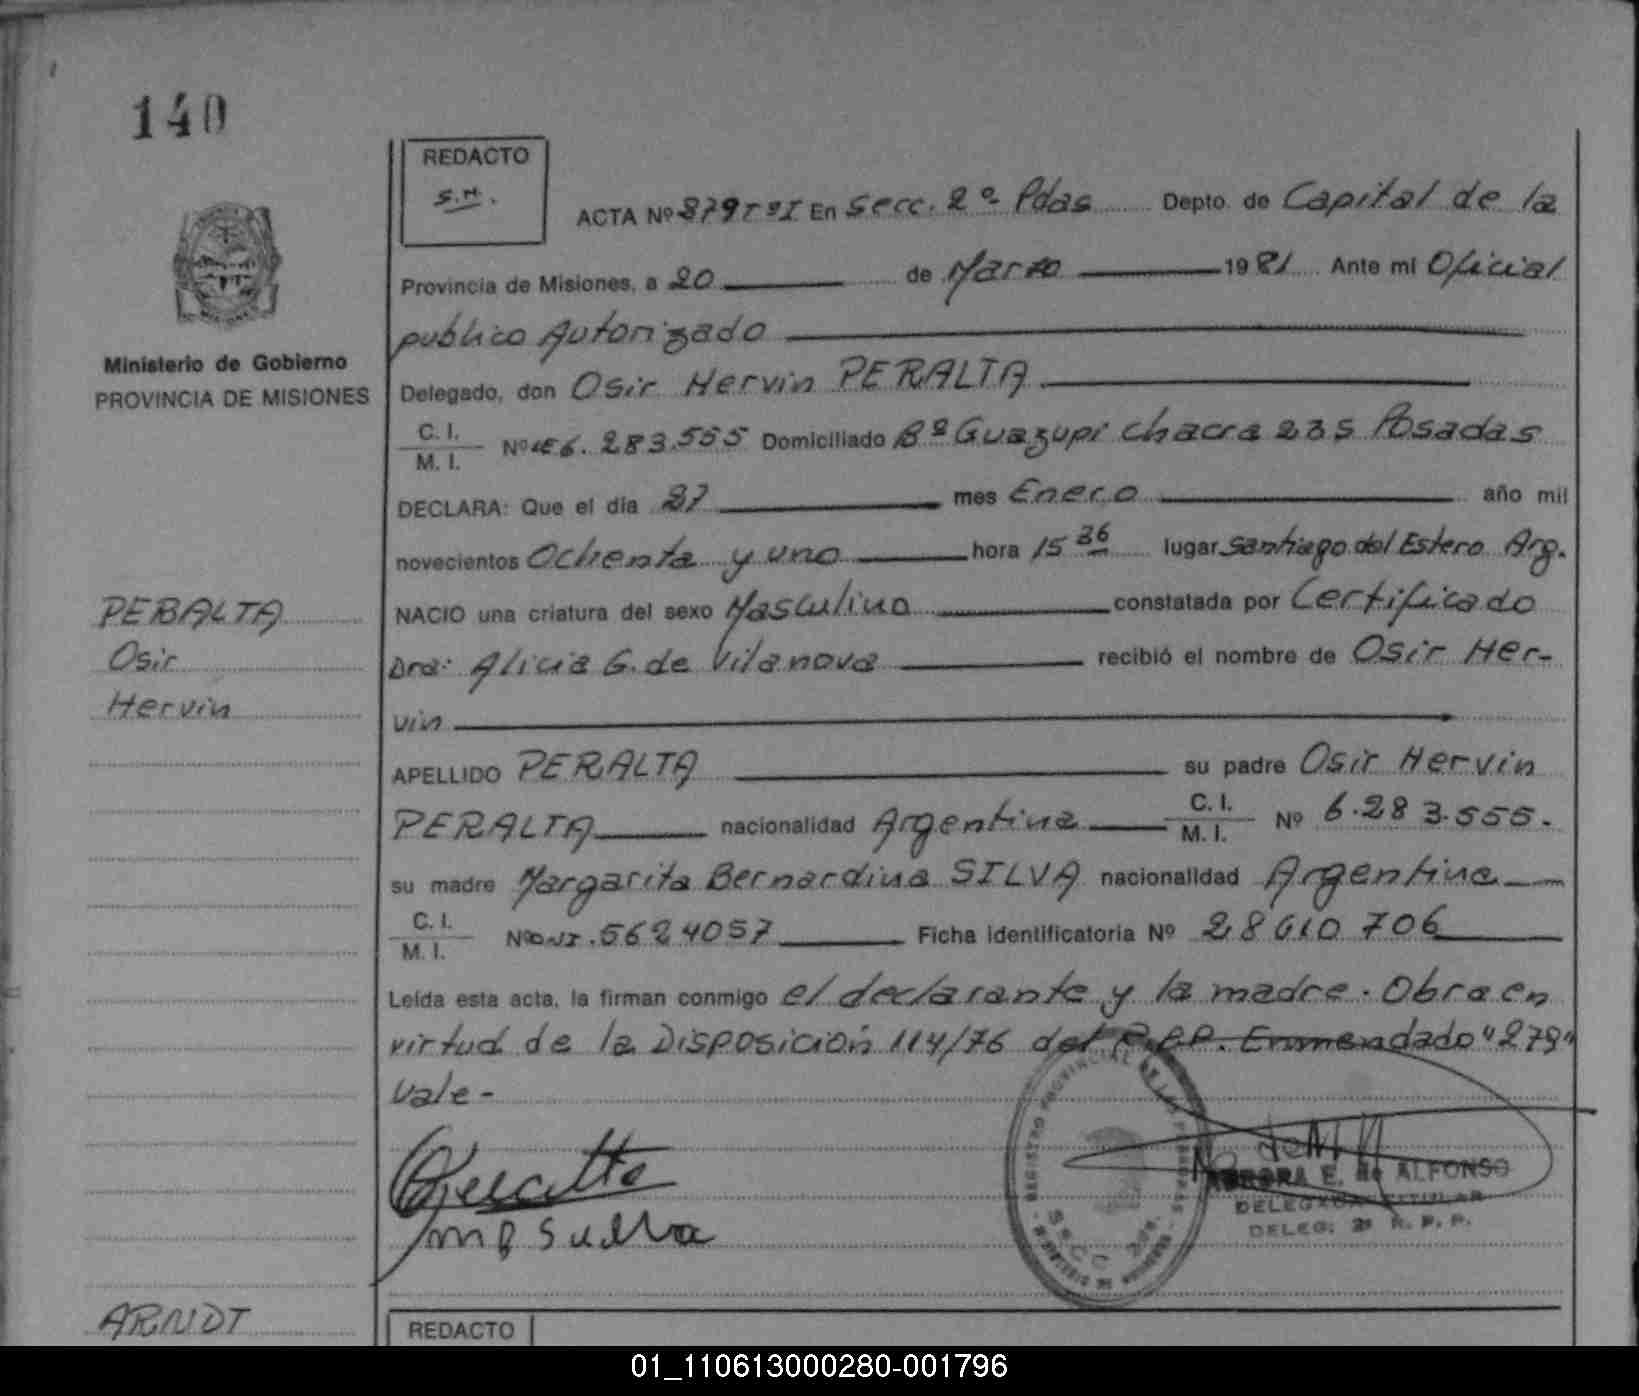 140
REDACTO
S.M.
ACTA Nº 879 TºI En Secc. 2º Pdas Depto. de Capital de la
Provincia de Misiones, a 20 de Marzo 1981 Ante mí Oficial
publico Autorizado
Ministerio de Gobierno
PROVINCIA DE MISIONES
Delegado, don Osir Hervin PERALTA
C. I.
M. I. Nº LE 6.283.555 Domiciliado Bº Guazupi chacra 235 Posadas
DECLARA: Que el día 27 mes Enero año mil
novecientos Ochenta y uno hora 15 36 lugar Santiago del Estero Arg.
PERALTA
Osir
Hervin
NACIO una criatura del sexo Masculino constatada por Certificado
Dra: Alicia G. de Vilanova recibió el nombre de Osir Her-
vin
APELLIDO PERALTA su padre Osir Hervin
PERALTA nacionalidad Argentina C. I. M. I. Nº 6.283.555.
su madre Margarita Bernardina SILVA nacionalidad Argentina
C. I.
M. I. Nº DNI. 5624057 Ficha identificatoria Nº 28 610 706
Leída esta acta, la firman conmigo el declarante y la madre. Obra en
virtud de la Disposición 114/76 del R.P.P. Enmendado "279"
Vale-
REGISTRO PROVINCIAL DE LAS PERSONAS
SECC 2da.
MINISTERIO DE GOBIERNO
E. de ALFONSO
DELEGADA TITULAR
DELEG. 2ª R. P. P.
ARNDT
REDACTO
01_110613000280-001796